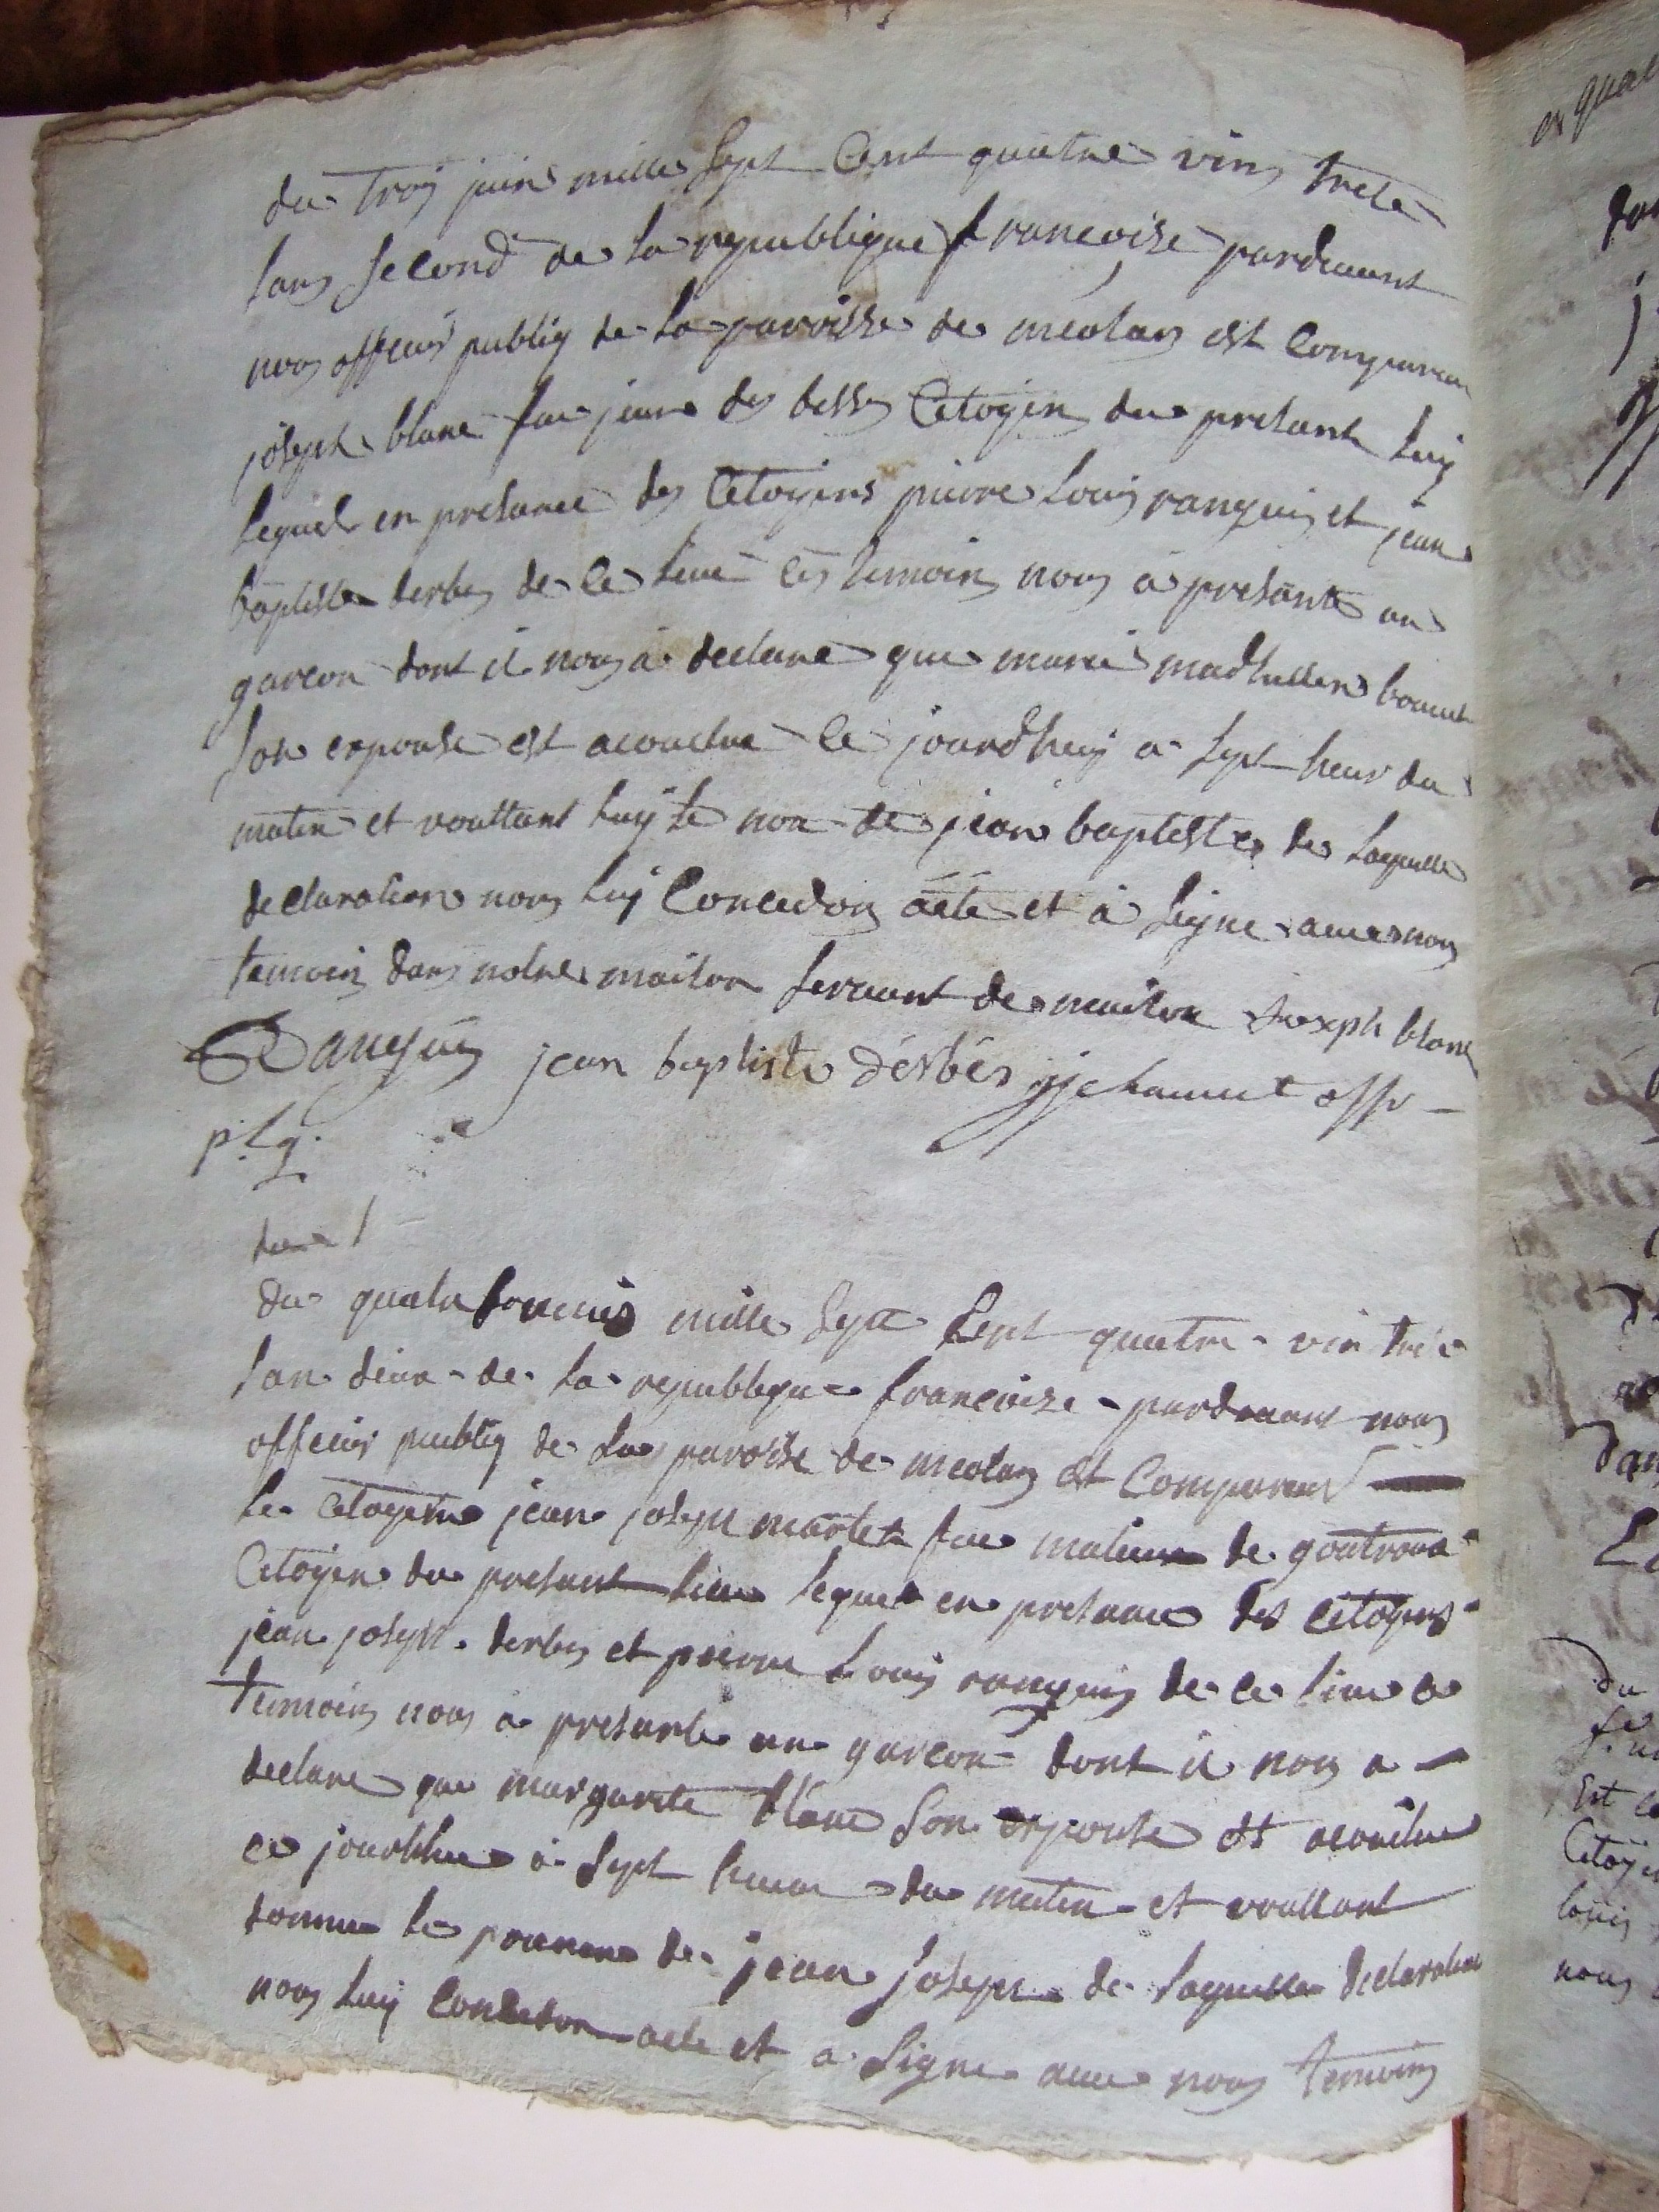 du trois juin mille sept Cent quatre vins treise
lans second de la republique francoise pardevant
nous officier publiq de la paroisse de meolans est Comparu
joseph blanc feu jean des besses Citoyen du present luy
lequel en presance des Citoyens pierre louis ranguis et jean
baptiste derbes de ce lieu ces temoins nous a presante un
garcon dont il nous a declare que marie madhallen
son expouse est acouchee ce jourdhuy a sept heur du
matin et voullant luy le non de jean baptiste de laquelle
declaration nous luy Concedons acte et a signe avec nous
temoins dans notre maison servant de maison Joseph blanc
Ranguis jean baptiste dérbés jjchauvet offr
p.lq.
du
du quatorse mille sept Cent quatre vin treise
lan deux de la republique francoise pardevant nous
officier publiq de la paroise de meolans est Comparu
le citoyen jean joseph martel feu mathieu de
Citoyen du presant lieu lequel en presance des Citoyens
jean joseph derbes et pierre louis ranguis de ce lieu
temoins nous a presante un garcon dont il nous a
declare que margarite blanc son expouse est acouchee
ce jourdhuy a sept heur du matin et voullant
donner le prenon de jean joseph de laquelle declaration
nous luy Concedon acte et a signe avec nous temoins